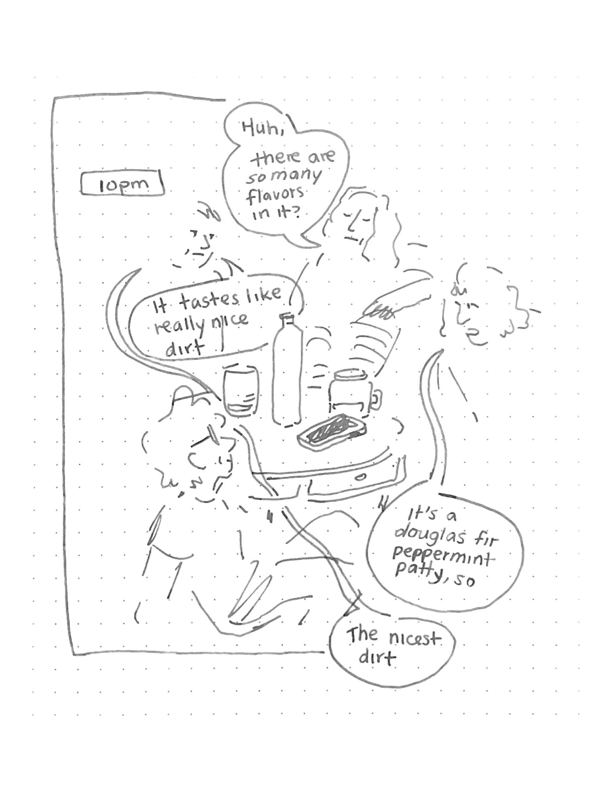 10pm
Huh,
there are
so many
flavors
in it?
It tastes like
really nice
dirt
It's a
douglas fir
peppermint
patty, so
The nicest
dirt